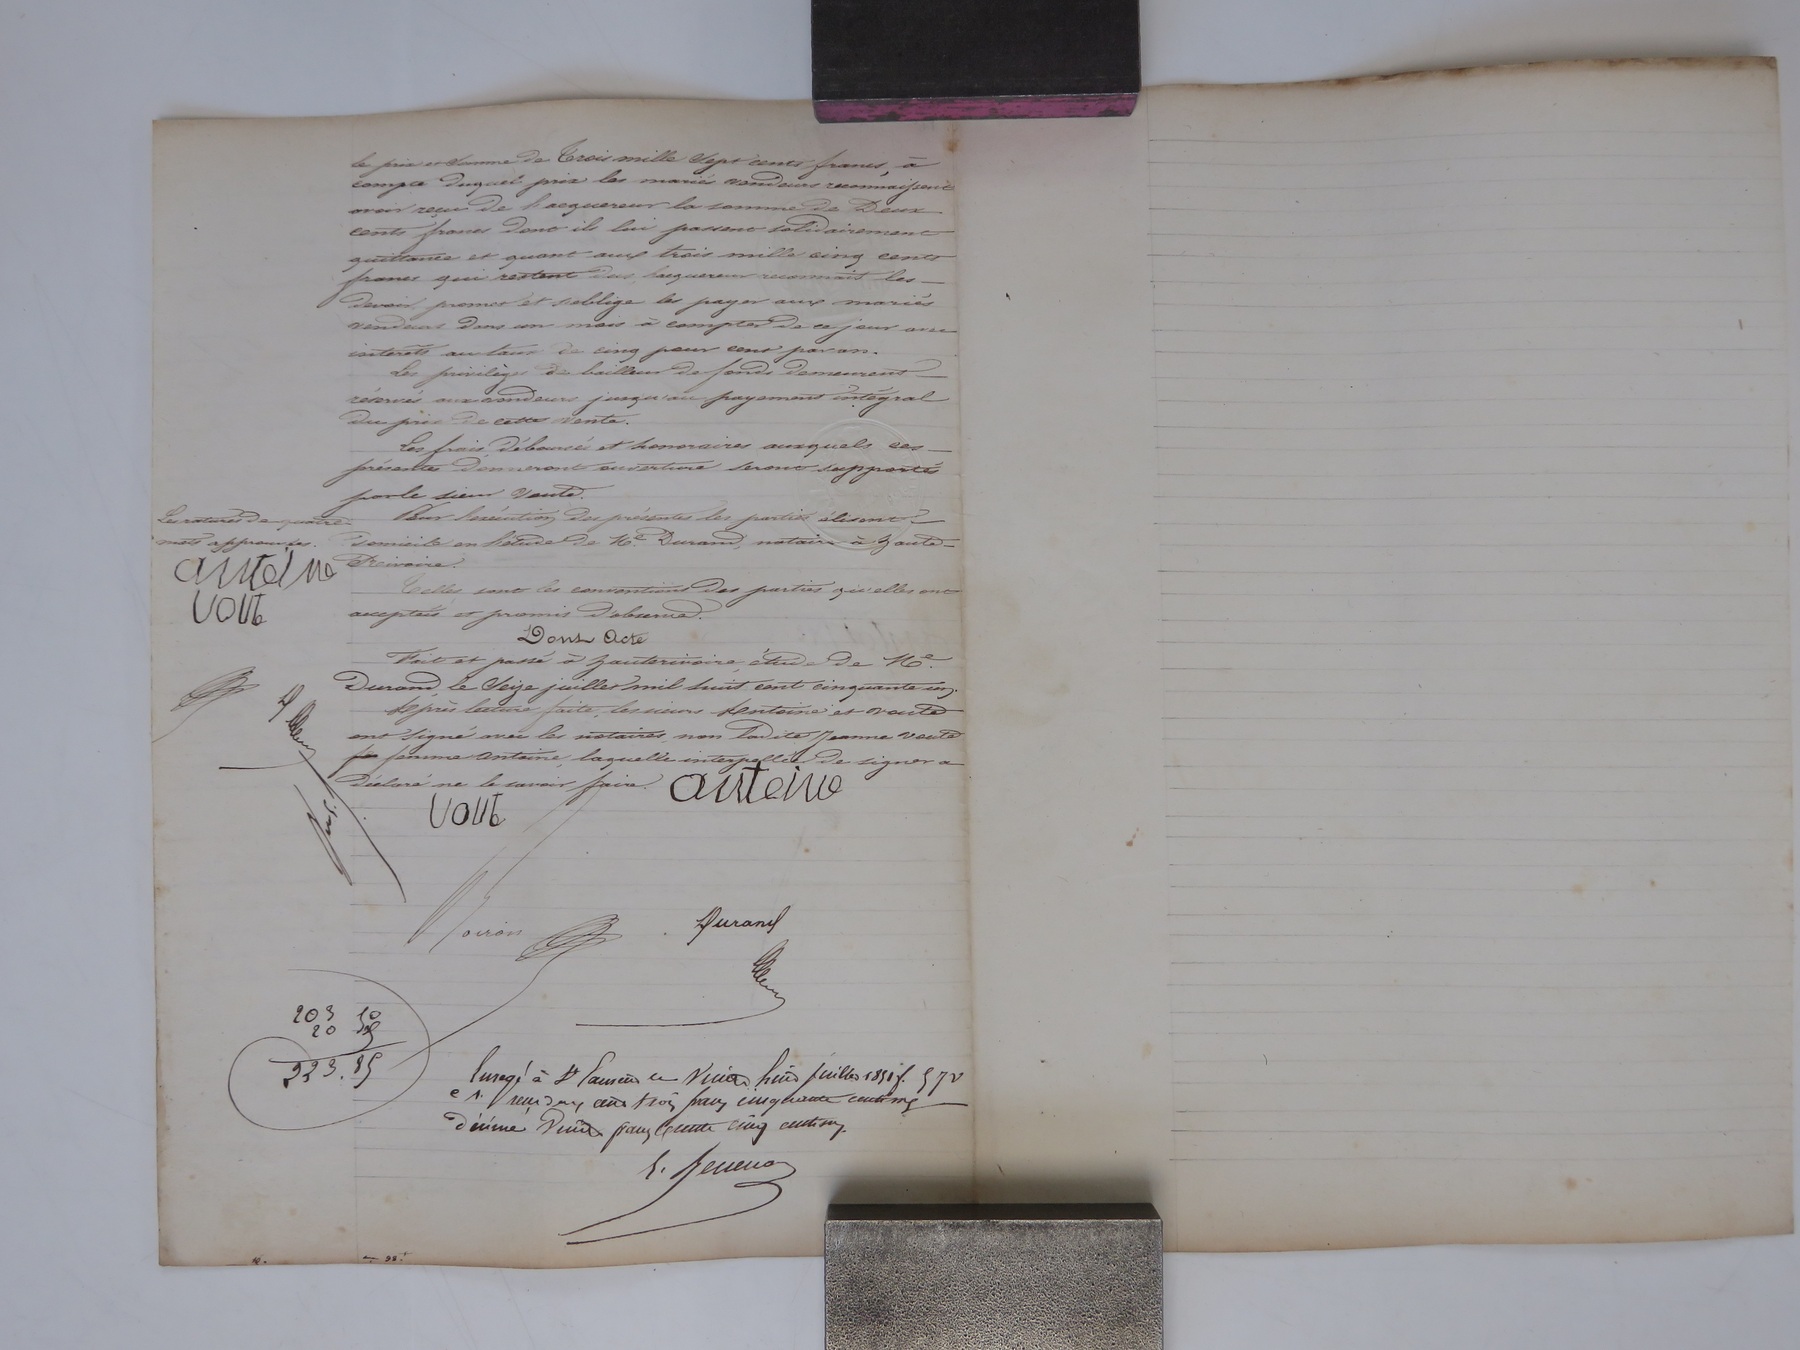 le prix et somme de Trois mille Sept cents francs, à
compte duquel prix les mariés vendeurs reconnaissent
avoir reçu de l'acquereur la somme de Deux
cents francs dont ils lui passent solidairement
quittance et quant aux trois mille cinq cents
francs qui restent dus, l'acquereur reconnait les
devoir, promet et s'oblige les payer aux mariés
vendeurs dans un mois à compter de ce jour avec
intérêts au taux de cinq pour cent par an.
Les privilèges de bailleur de fonds demeurent
réservés aux vendeurs jusqu'au payement intégral
du prix de cette vente.
Les frais, déboursés et honoraires auxquels ces
présentes donneront ouverture seront supportés
par le sieur Vouté.
Pour l'exécution des présentes les parties élisent
domicile en l'étude de Me. Durand, notaire à Haute-
Rivoire.
Les ratures de quatre
mots approuvées.
antoine
Vout
Telles sont les conventions des parties qu'elles ont
acceptées et promis d'observer.
Dont Acte
Fait et passé à Hauterivoire, étude de Me.
Durand, le Seize juillet mil huit cent cinquante un.
Après lecture faite, les sieurs Antoine et Vouté
ont signé avec les notaires, non ladite Jeanne Vouté
femme Antoine, laquelle interpellée de signer a
déclaré ne le savoir faire.
antoine
Vout
Durand
203 50
20 35
223.85
Enregé à St Laurent le Vingt huit juillet 1851 f. 57 v
c 1. reçu deux cent trois francs cinquante centimes
décime Vingt francs trente cinq centimes.